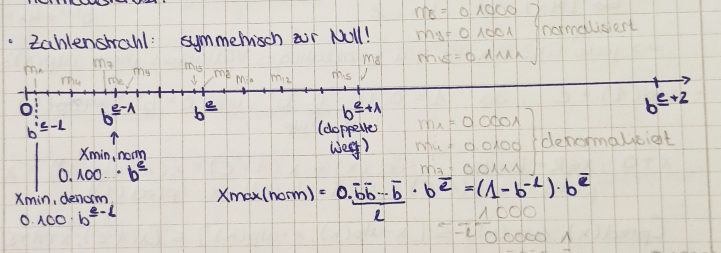 m₈ = 0.1000
· Zahlenstrahl: symmetrisch zur Null!
m₉ = 0.1001 } normalisiert
m₁₅ = 0.1111
m₁ m₄ m₇ m₈ m₉ m₁₅ m₈ m₁₀ m₁₂ m₁₅ m₈
0 b^(e-1) b^e b^(e+1) b^(e+2)
b^(e-l)
(doppelter Weg)
m₁ = 0.0001
m₄ = 0.0100 } denormalisiert
m₇ = 0.0111
xmin, norm
0.100... · b^e
xmin, denorm
0.100 · b^(e-l)
xmax(norm) = 0.b̄b̄...b̄ · b^ē = (1-b^(-l)) · b^ē
l
1000
0.0000 1